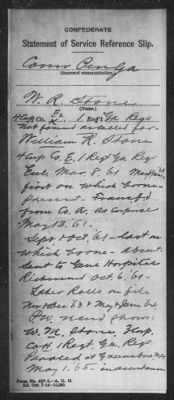 CONFEDERATE
Statement of Service Reference Slip.
Comr Pen Ga
(Source of communication.)
W. R.
(Name.)
Co. E, 1 Regt Ga Regs
not found as called for
William R. Stone
Corp Co. E. 1 Regt Ga Regs
Enl. Mar. 8, 61
first on which borne
present. Transf'd
from Co. A. as Corporal
May 13. 61.
Sept & Oct. 61 - last on
which borne - absent
Sent to Genl Hospital
Richmond Oct. 6, 61.
Later Rolls on file
Nov & Dec 63 &
P.W. record shows:
W. M. Stone,
Co H 1 Regt. Ga. Regs.
Paroled at Greensboro
May 1. 65. in accordance